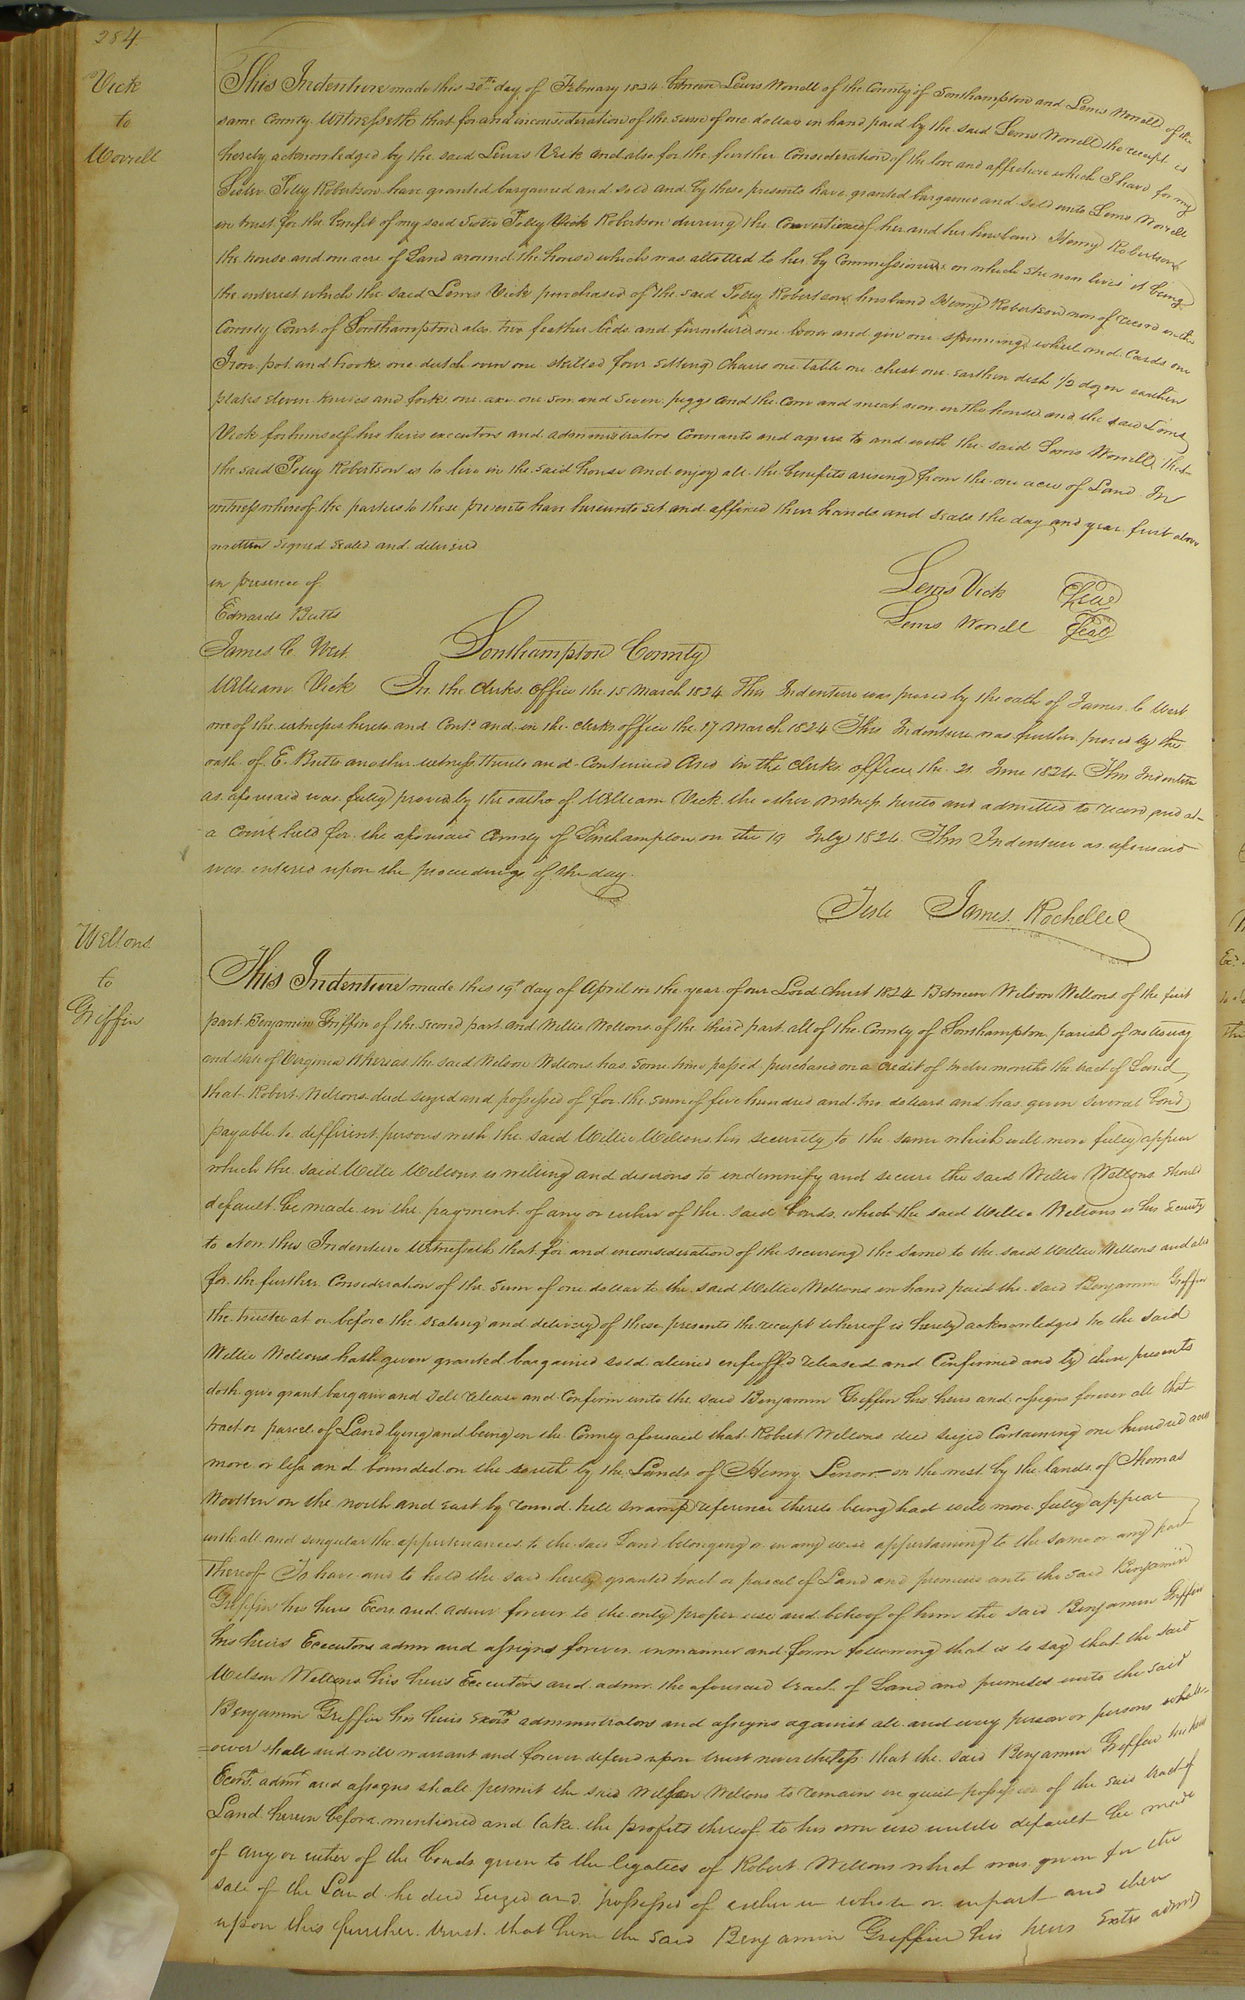 284
Vick
to
Worrell
This Indenture made this 20th day of February 1824 between Lewis Worrell of the County of Southampton and Lewis Worrell of the
same County Witnesseth that for and inconsideration of the sum of one dollar in hand paid by the said Lewis Worrell the receipt is
hereby acknowledged by the said Lewis Vick and also for the further Consideration of the love and affection which I have for my
Sister Polly Robertson have granted bargained and sold and by these presents have granted bargained and sold unto Lewis Worrell
in trust for the benefit of my said Sister Polly Vick Robertson during the of her and her husband Henry Robertson
the house and one acre of Land around the house which was allotted to her by Commissioners on which she now lives it being
the interest which the said Lewis Vick purchased of the said Polly Robertson husband Henry Robertson now of record in the
County Court of Southampton also two feather beds and furniture one loom and gin one spinning wheel and Cards one
Iron pot and hooks one dutch oven one skillet four setting chairs one table one chest one earthen dish 1/2 dozen earthen
plates eleven knives and forks one axe one sow and seven piggs and the corn and meat now in the house and the said Lewis
Vick for himself his heirs executors and administrators Covenants and agrees to and with the said Lewis Worrell that
the said Polly Robertson is to live in the said house and enjoy all the benefits arising from the one acre of Land In
witness whereof the parties to these presents have hereunto set and affixed their hands and seals the day and year first above
written signed sealed and delivered
in presence of
Lewis Vick Seal
Edwards Butts
Lewis Worrell Seal
James C. West
Southampton County
William Vick In the Clerks office the 15 March 1824 This Indenture was proved by the oath of James C West
one of the witnesses hereto and Contd and in the clerks office the 17 March 1824 This Indenture was further proved by the
oath of E. Butts another witness thereto and Continued And in the clerks office the 21 June 1824 This Indenture
as aforesaid was fully proved by the oaths of William Vick the other witness hereto and admitted to record and at
a Court held for the aforesaid County of Southampton on the 19 July 1824 This Indenture as aforesaid
was entered upon the proceedings of the day.
Teste James Rochelle
Wellons
to
Griffin
This Indenture made this 19th day of April in the year of our Lord Christ 1824 Between Wilson Wellons of the first
part Benjamin Griffin of the second part and Willie Wellons of the third part all of the County of Southampton parish of nottoway
and state of Virginia Whereas the said Wilson Wellons has some time passed purchased on a credit of twelve months the tract of Land
that Robert Wellons died seized and possessed of for the sum of five hundred and two dollars and has given several bonds
payable to different persons with the said Willie Wellons his security to the same which will more fully appear
which the said Willie Wellons is willing and desirous to indemnify and secure the said Willie Wellons should
default be made in the payment of any or either of the said bonds which the said Willie Wellons is his security
to Now this Indenture Witnesseth that for and inconsideration of the securing the same to the said Willie Wellons and also
for the further Consideration of the sum of one dollar to the said Willie Wellons in hand paid the said Benjamin Griffin
the trustee at or before the sealing and delivery of these presents the receipt whereof is hereby acknowledged he the said
Willie Wellons hath given granted bargained sold aliened enfeoff'd released and Confirmed and by these presents
doth give grant bargain and Sell release and Confirm unto the said Benjamin Griffin his heirs and assigns forever all that
tract or parcel of Land lying and being in the County aforesaid that Robert Wellons died seized Containing one hundred acres
more or less and bounded on the south by the Lands of Henry on the west by the lands of Thomas
Wootten on the north and east by round hill swamp reference thereto being had will more fully appear
with all and singular the appurtenances to the said Land belonging or in any wise appertaining to the same or any part
Thereof To have and to hold the said hereby granted tract or parcel of Land and premises unto the said Benjamin
Griffin his heirs Ecors and admrs forever to the only proper use and behoof of him the said Benjamin Griffin
his heirs Executors admrs and assigns forever in manner and form following that is to say that the said
Wilson Wellons his heirs Executors and admrs the aforesaid tract of Land and premises unto the said
Benjamin Griffin his heirs Exors administrators and assigns against all and every person or persons whats
=oever shall and will warrant and forever defend upon trust nevertheless that the said Benjamin Griffin his heirs
Ecors admrs and assigns shall permit the said Wilson Wellons to remain in quiet possession of the said tract of
Land herein before mentioned and take the profits thereof to his own use untill default be made
of any or either of the bonds given to the legatees of Robert Wellons which was given for the
sale of the Land he died seized and possessed of either in whole or in part and then
upon this further trust that him the said Benjamin Griffin his heirs Extrs admrs